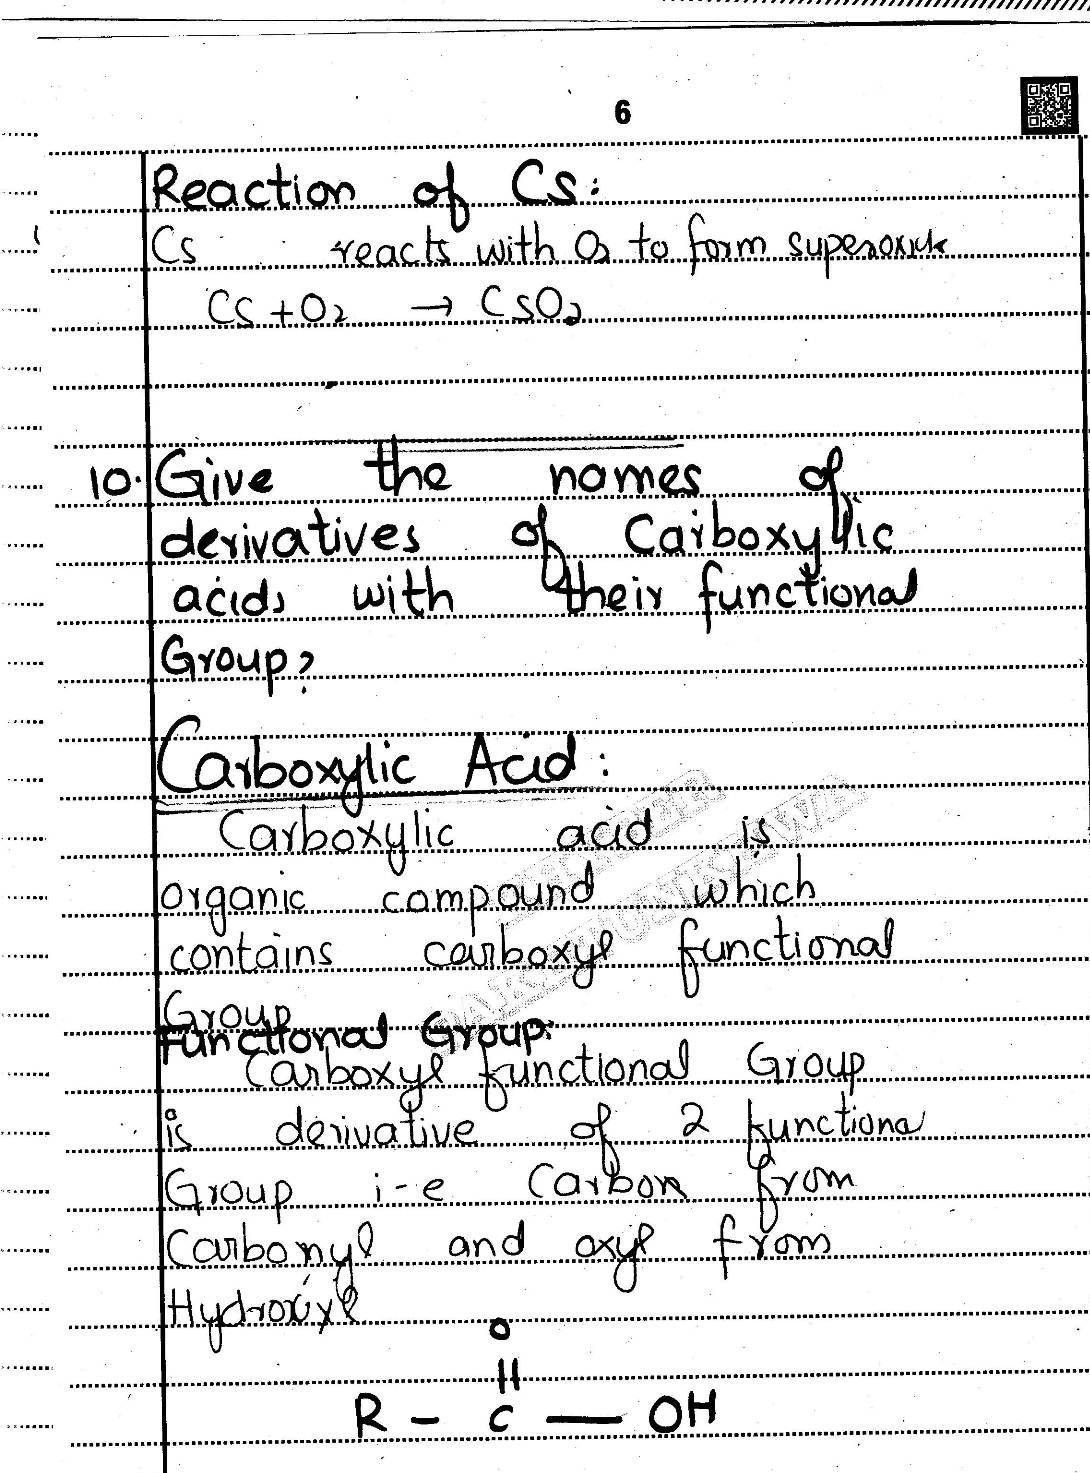 6
Reaction of Cs:
Cs reacts with O2 to form superoxide
Cs + O2 → CsO2
10. Give the names of
derivatives of Carboxylic
acids with their functional
Group?
Carboxylic Acid:
Carboxylic acid is
organic compound which
contains carboxyl functional
Group
Functional Group:
Carboxyl functional Group
is derivative of 2 functiona
Group i-e Carbon from
Carbonyl and oxyl from
Hydroxyl
O
||
R - C — OH